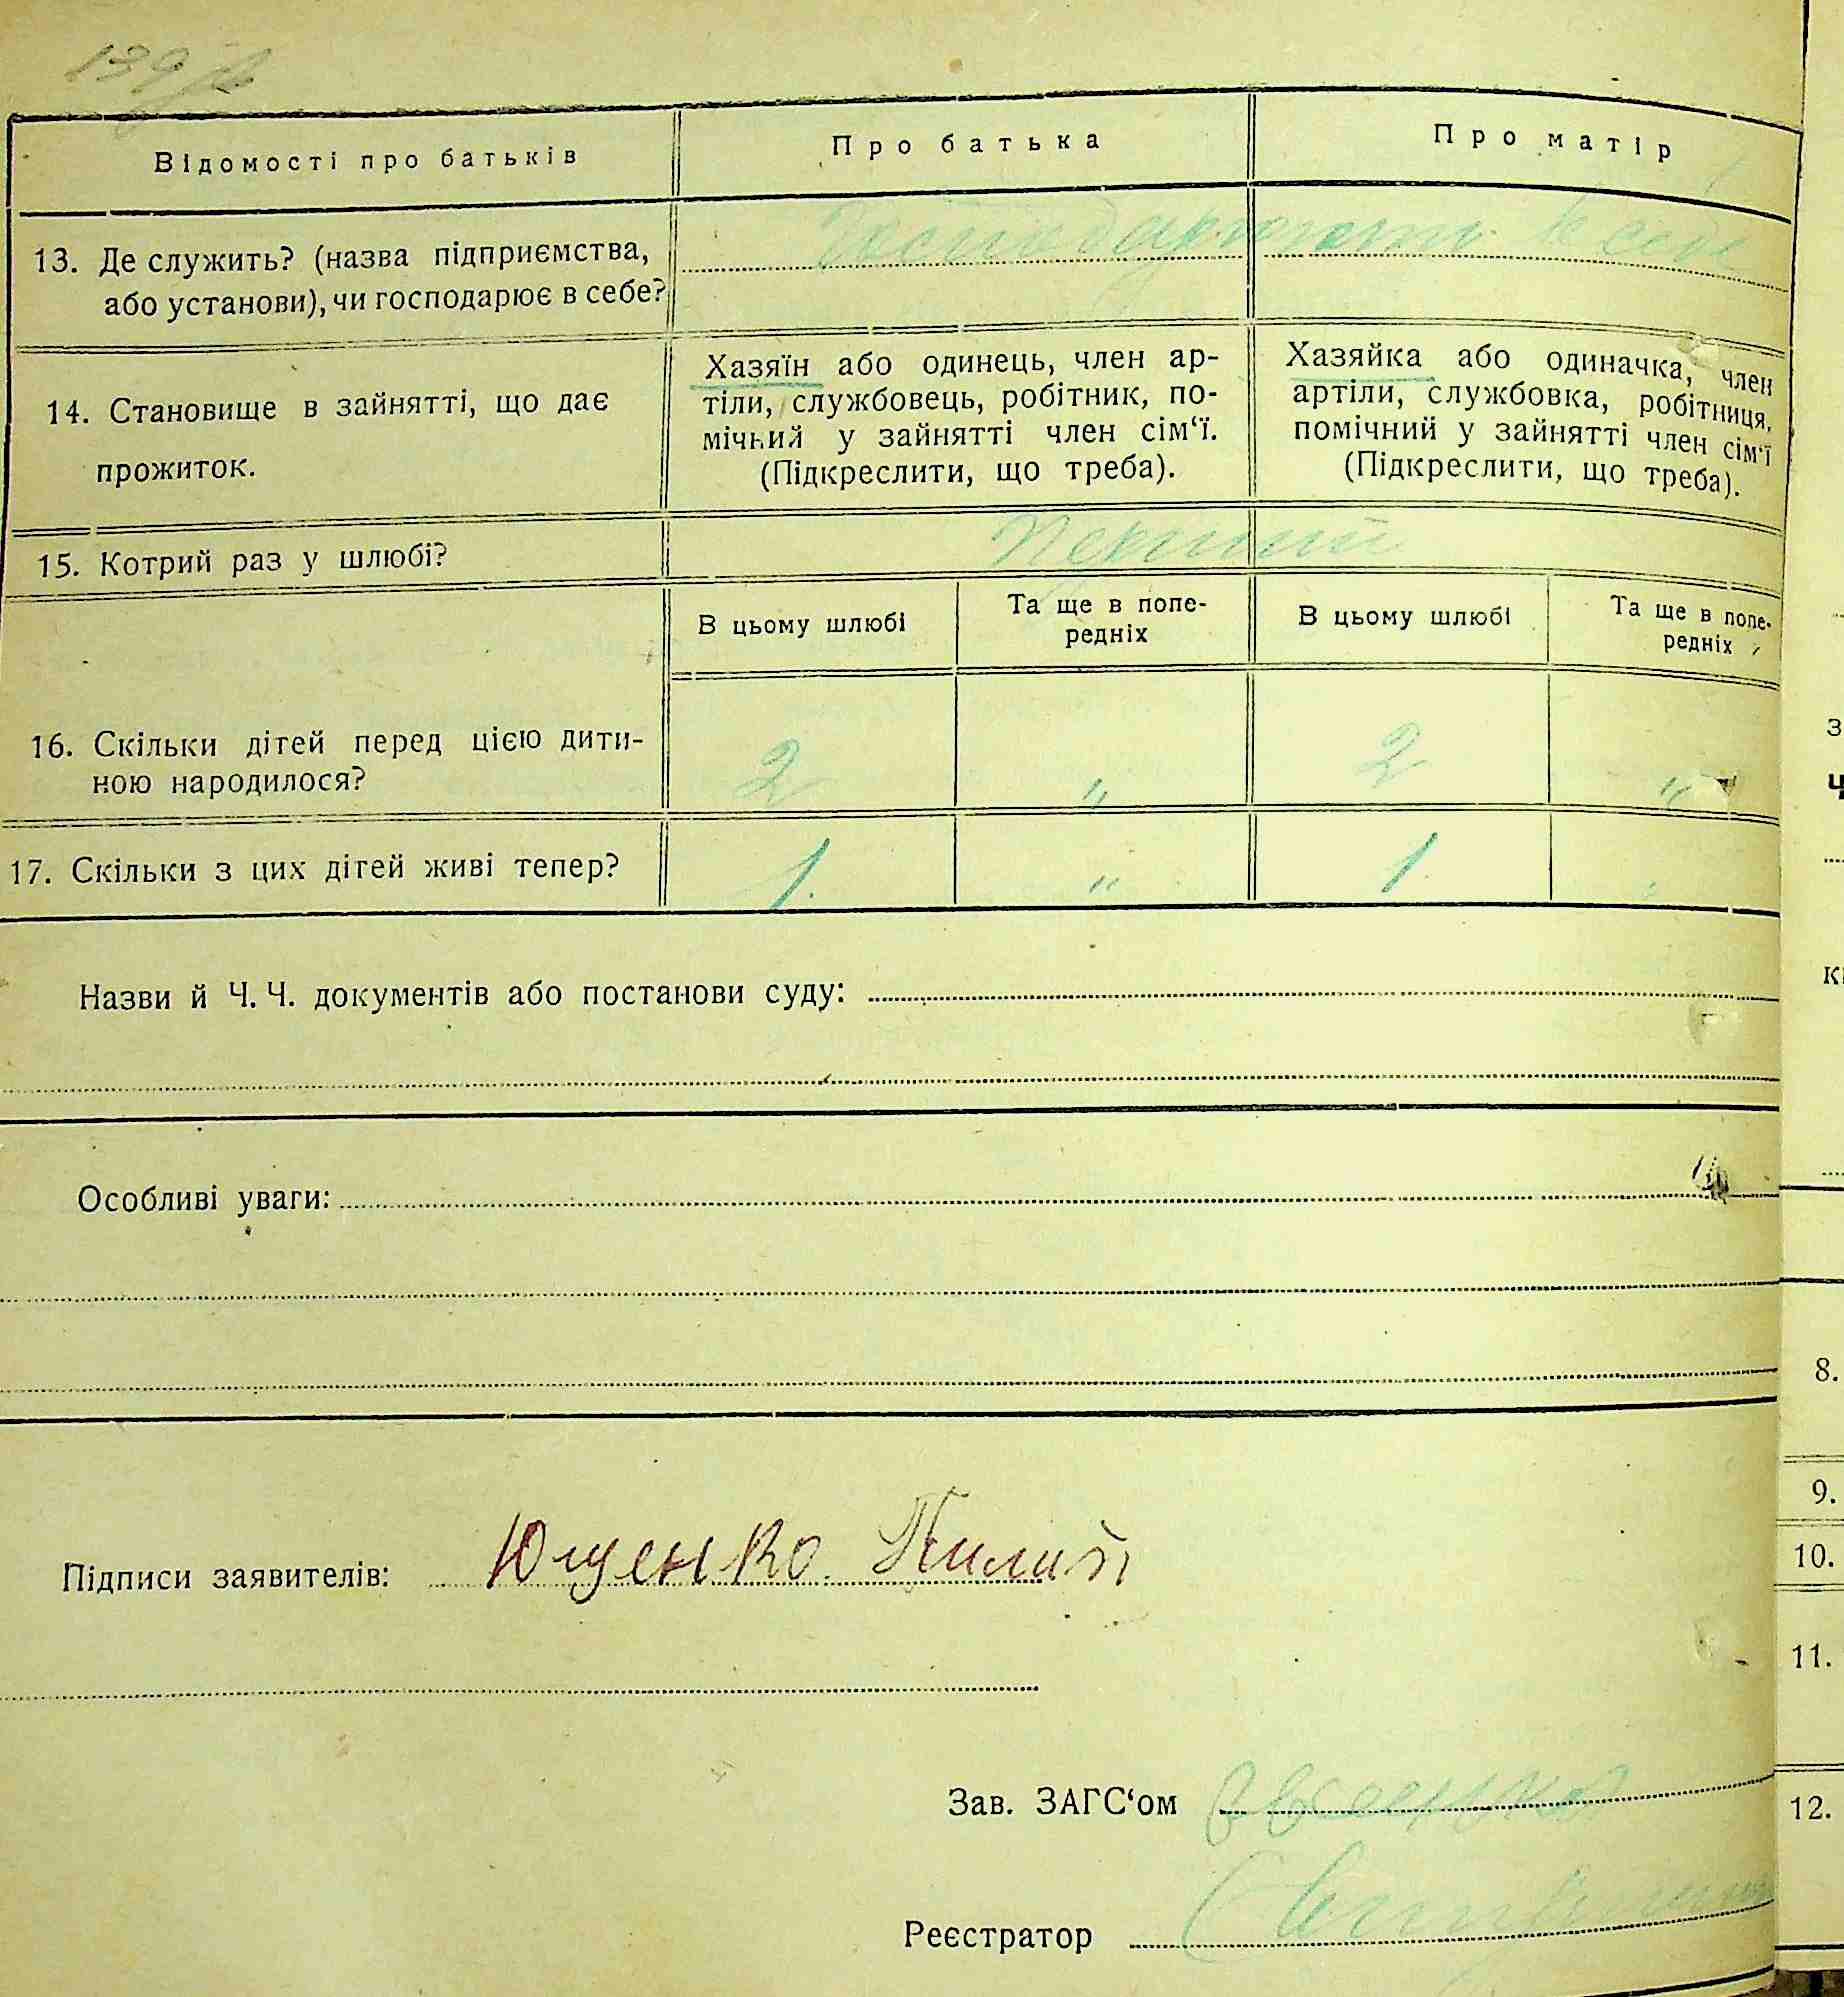 139
Відомості про батьків
Про батька
Про матір
13. Де служить? (назва підприємства,
або установи), чи господарює в себе?
Господарюють в себе
14. Становище в зайнятті, що дає
прожиток.
Хазяїн або одинець, член ар-
тіли, службовець, робітник, по-
мічний у зайнятті член сім‘ї.
(Підкреслити, що треба).
Хазяйка або одиначка, член
артіли, службовка, робітниця,
помічний у зайнятті член сім‘ї
(Підкреслити, що треба).
15. Котрий раз у шлюбі?
Перший
В цьому шлюбі
Та ще в попе-
редніх
В цьому шлюбі
Та ще в попе-
редніх
16. Скільки дітей перед цією дити-
ною народилося?
2 " 2 "
17. Скільки з цих дітей живі тепер?
1. " 1. "
Назви й Ч. Ч. документів або постанови суду:
Особливі уваги:
Підписи заявителів: Ющенко Пилип
Зав. ЗАГС‘ом
Реєстратор
8.
9.
10.
11.
12.